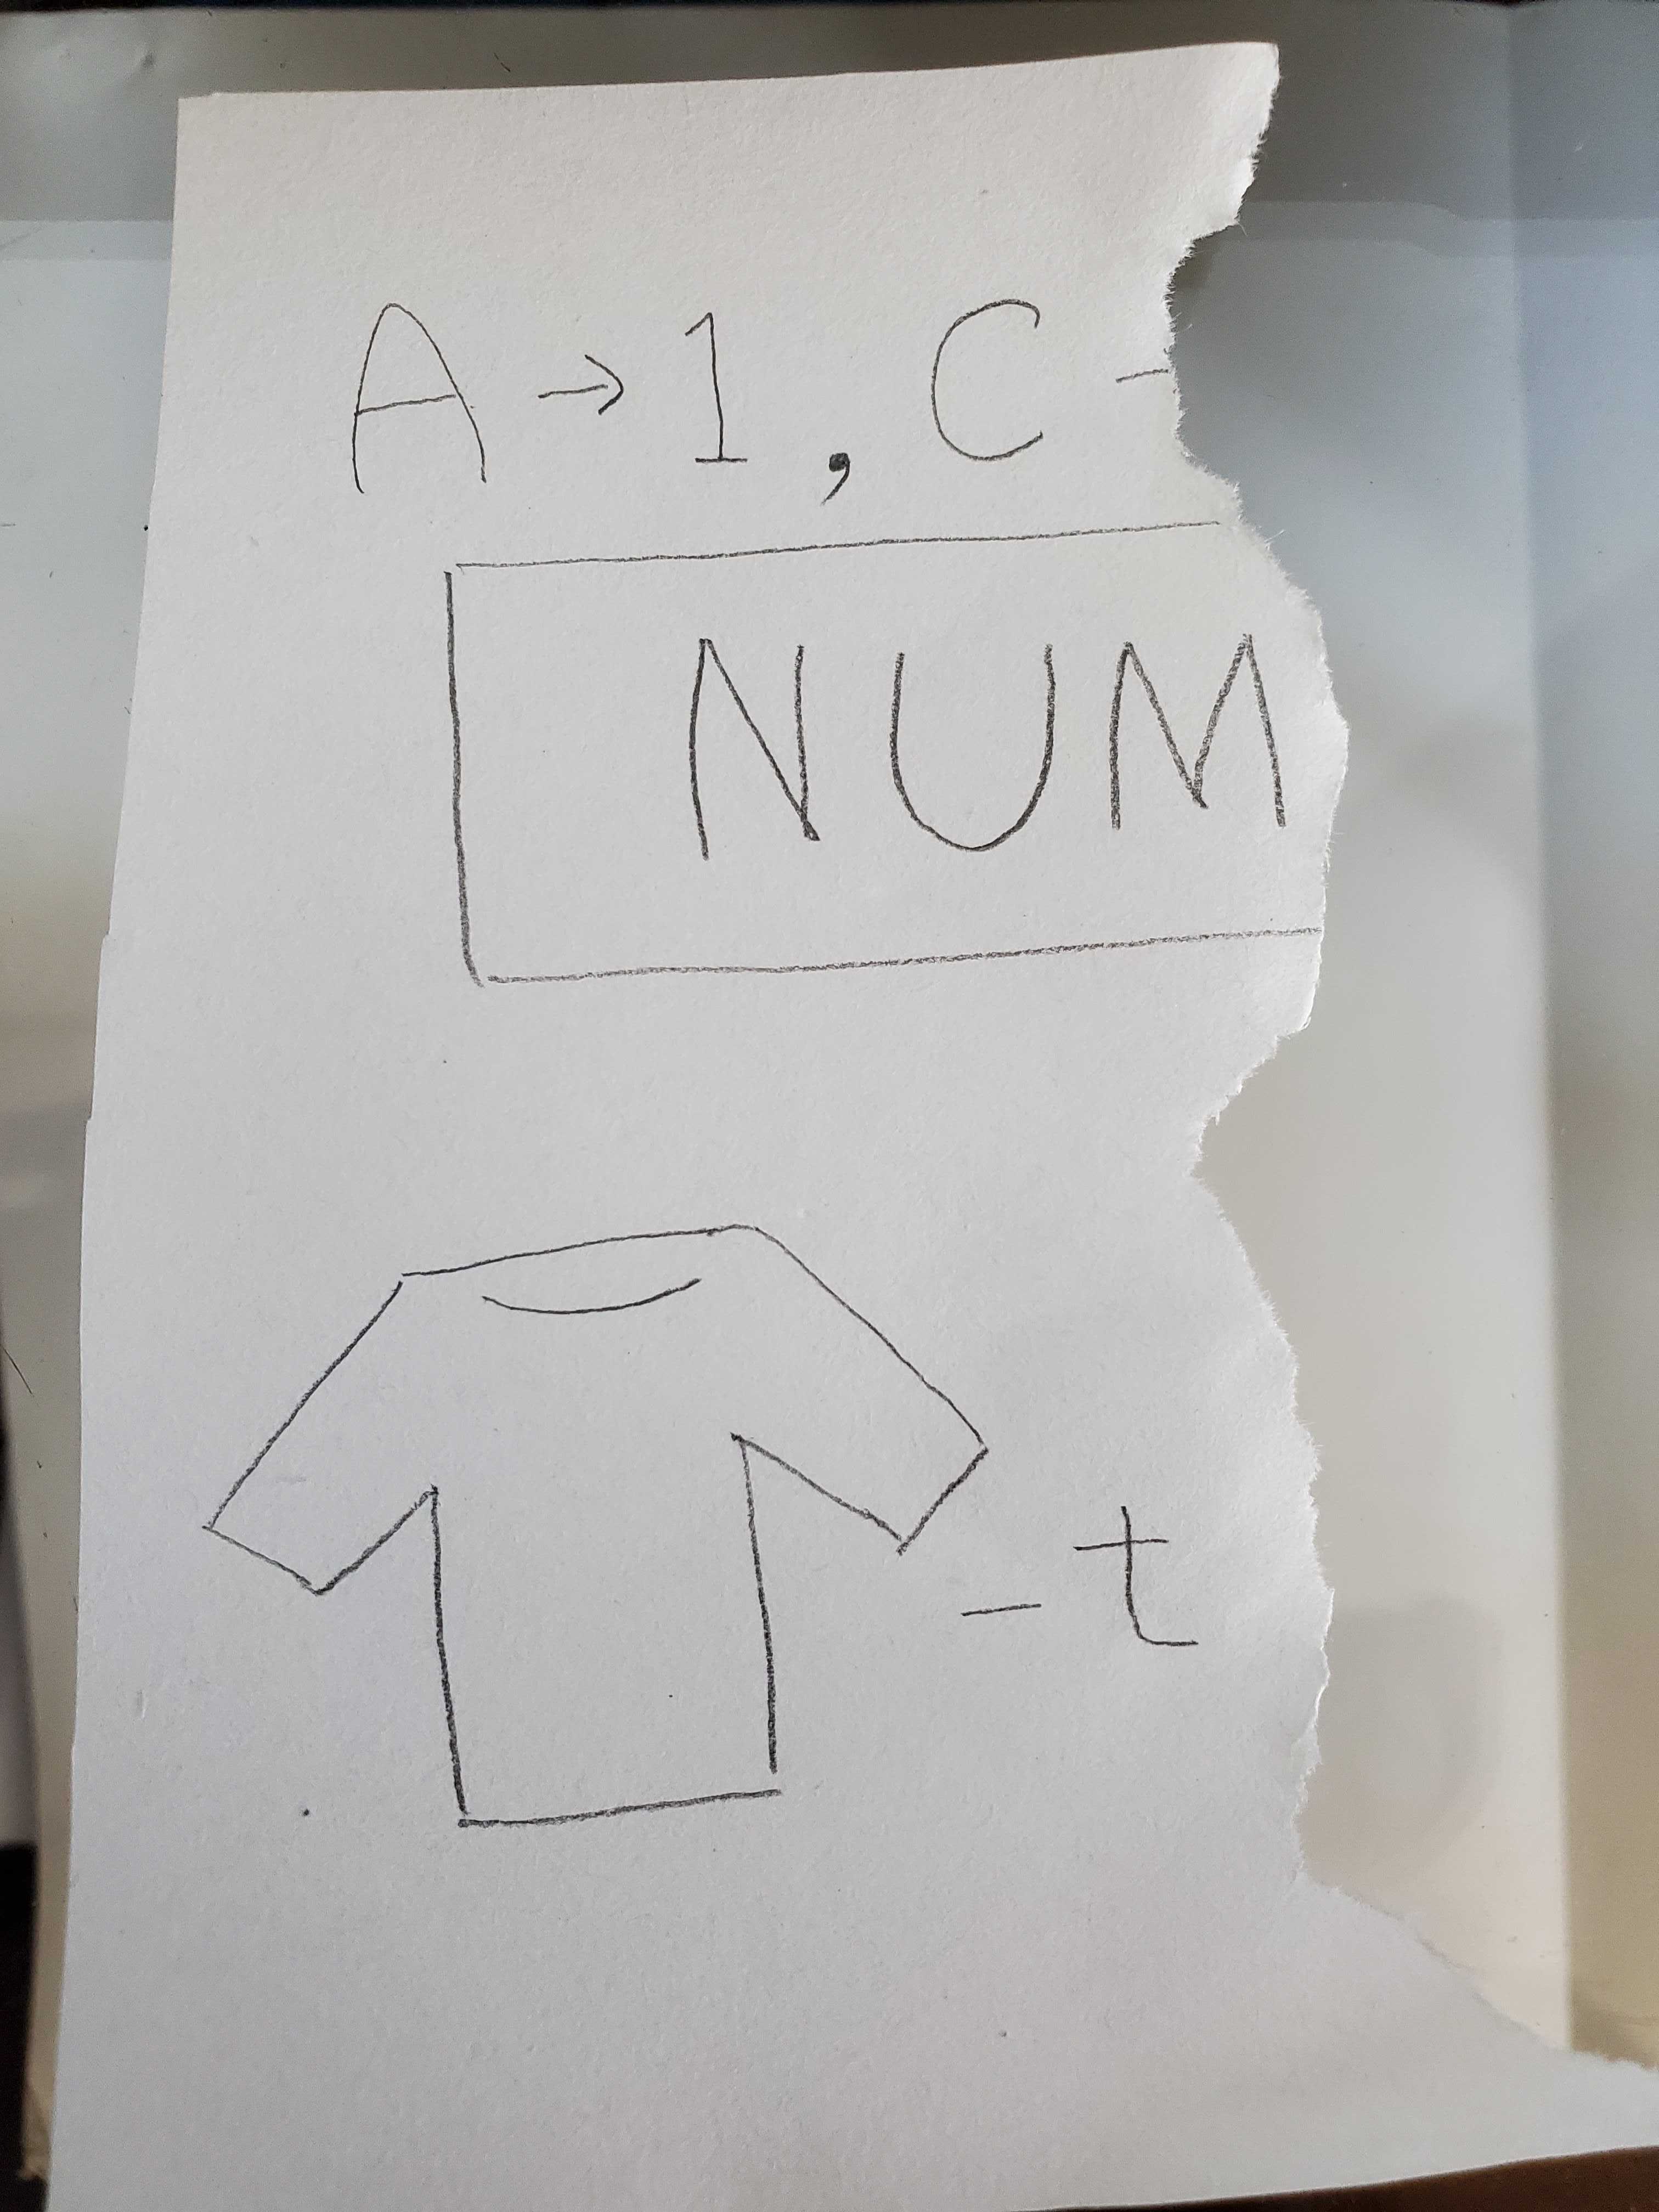 A → 1, C -
NUM
- t